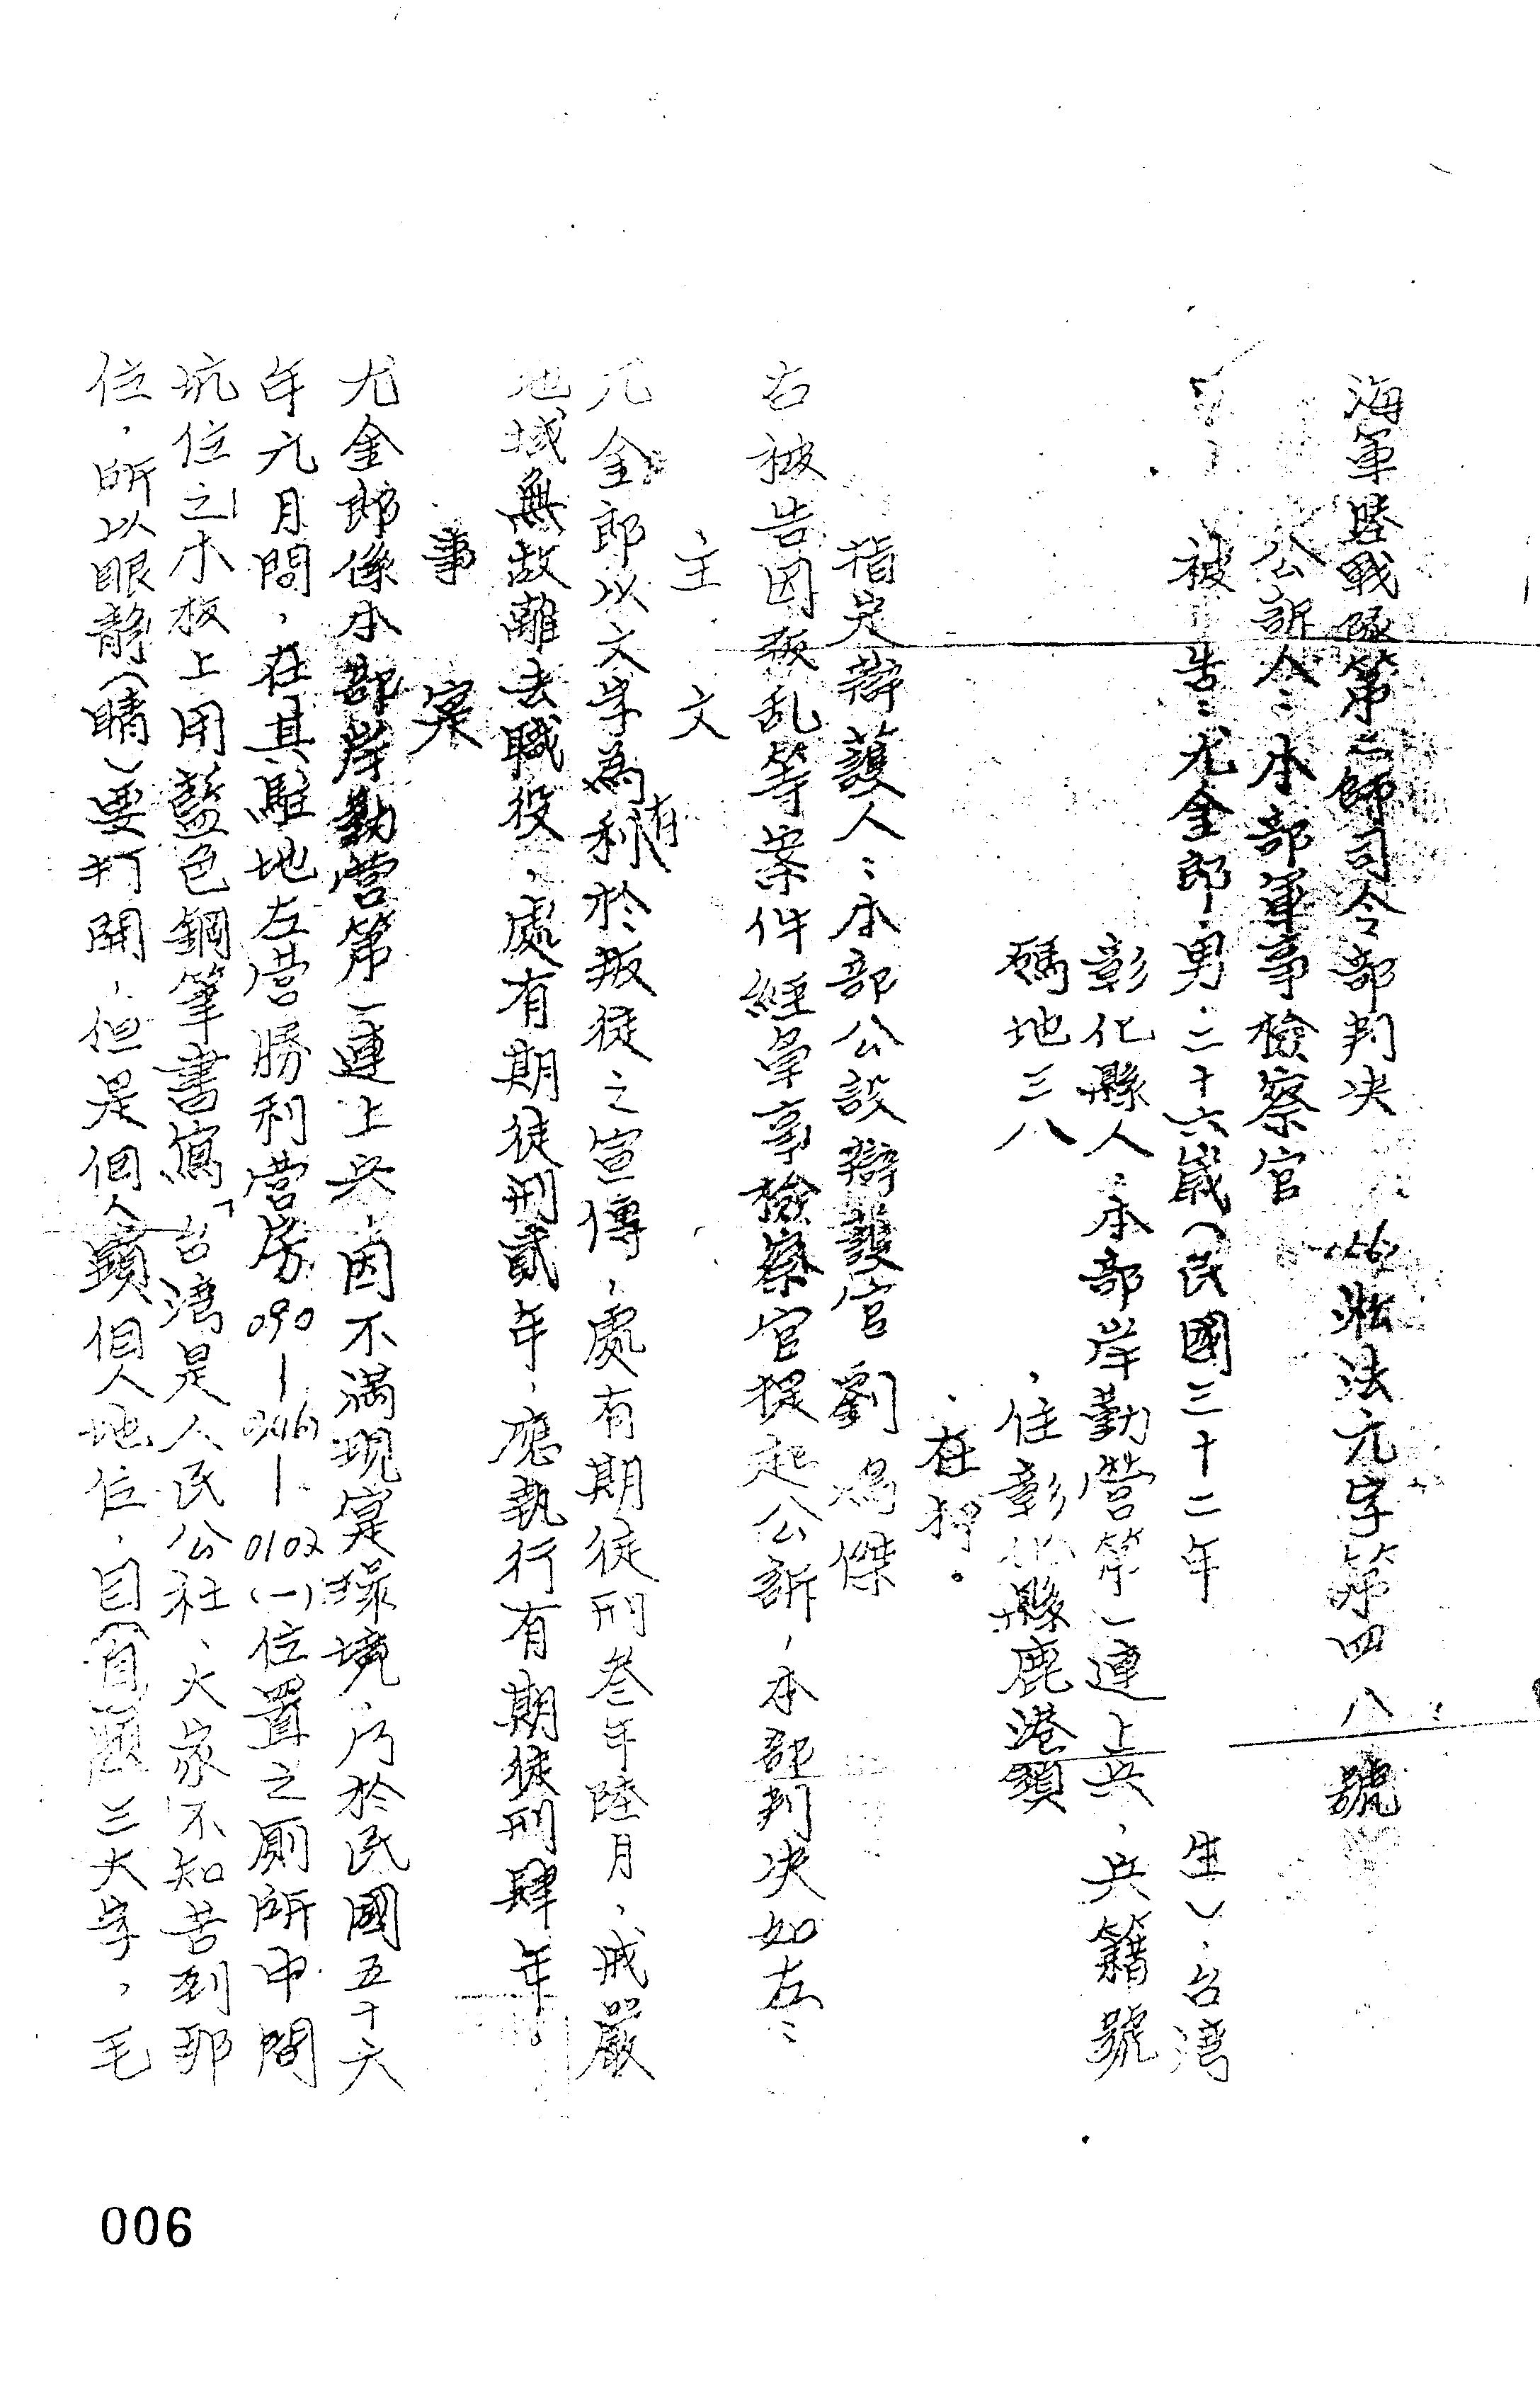 海軍陸戰隊第二師司令部判决 淞法亢字第四八號
公訴人：本部軍事檢察官
被告：尤金郎，男，二十六嵗（民國三十二年生），台湾
彰化縣人，本部岸勤營第一連上兵，兵籍號
碼地三八 ，住彰化縣鹿港鎮
，在押。
指定辯護人：本部公設辯護官 劉鴻傑
右被告因叛乱等案件經軍事檢察官提起公訴，本部判决如左：
主文
尤金郎以文字為有利於叛徒之宣傳，處有期徒刑叁年陸月，戒嚴
地域無故離去職役，處有期徒刑貳年，應執行有期徒刑肆年。
事實
尤金郎係本部岸勤營第一連上兵，因不满現實環境，乃於民國五十六
年九月間，在其駐地左营勝利营房090—0461—0102(一)位置之厠所中間
坑位之木板上用藍色鋼筆書寫「台湾是人民公社、大家不知苦到那
位，所以眼静（睛）要打開，但是個人顧個人地位，目（自）題三大字，毛
006